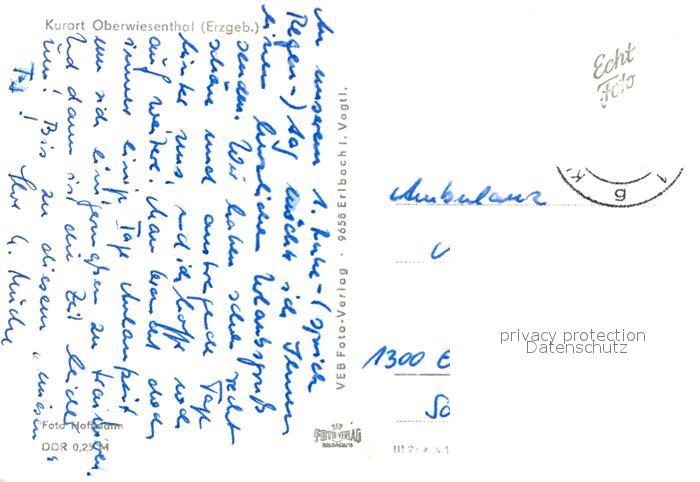 Kurort Oberwiesenthal (Erzgeb.)
An unserem 1. Ruhe-(sprich
Regen-) Tag möchte ich Ihnen
einen herzlichen Urlaubsgruß
senden. Wir haben schon recht
schöne und anstrengende Tage
hinter uns, und ich hoffe noch
auf weitere. Man braucht doch
immer einige Tage Anlaufzeit
um sich einigermaßen zu trainieren.
Und dann ist die Zeit leider
um! Bis zu diesem "
Ihre
VEB Foto-Verlag · 9658 Erlbach i. Vogtl.
Echt
Foto
K.
g
Ambulanz
1300 E
So
privacy protection
Datenschutz
Foto Hoffmann
DDR 0,25 M
FOTO VERLAG